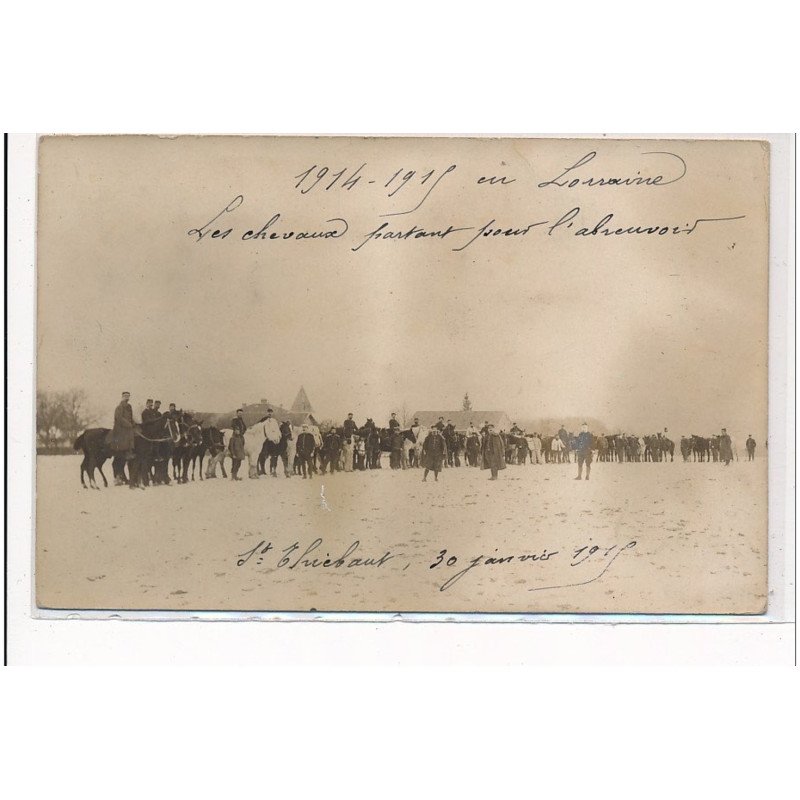 1914-1915 en Lorraine
Les chevaux partant pour l'abreuvoir
St Thiébaut, 30 janvier 1915